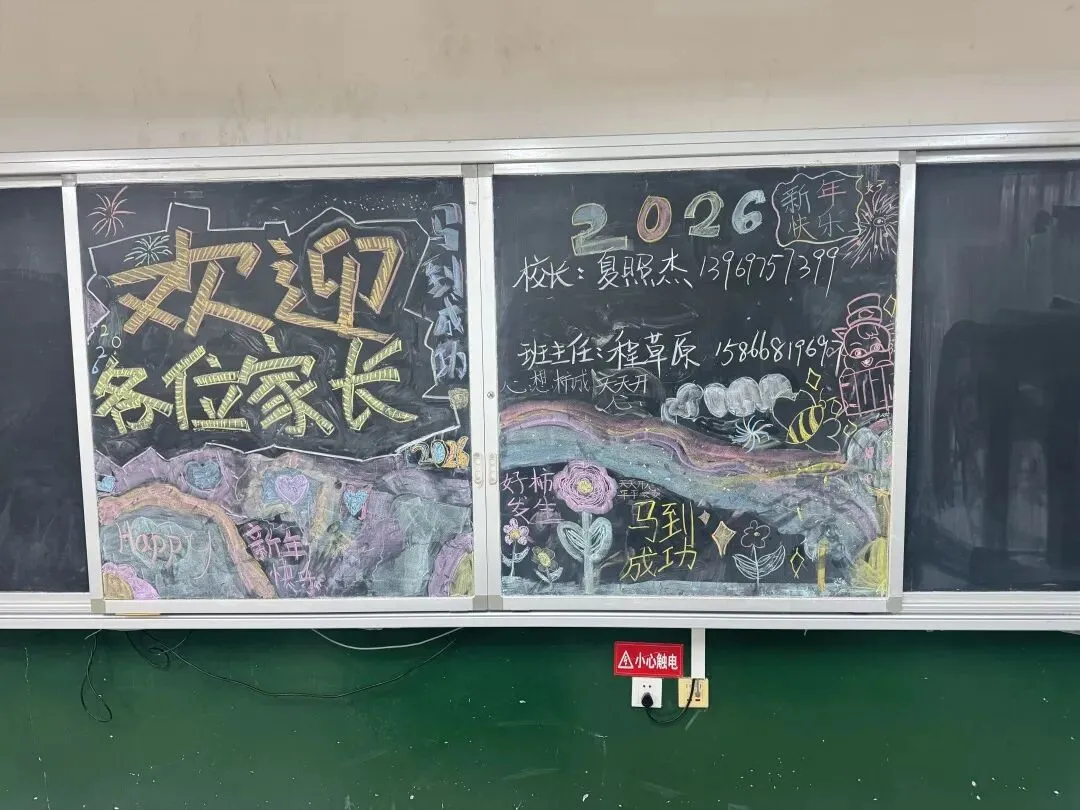 欢迎
各位家长
马到成功
2026
2026
Happy
新年
快乐
2026
新年
快乐
校长：夏照杰 13969757399
班主任：程草原 15866819697
心想柿成
天天开
心
好柿
发生
天天开心
马到
成功
小心触电